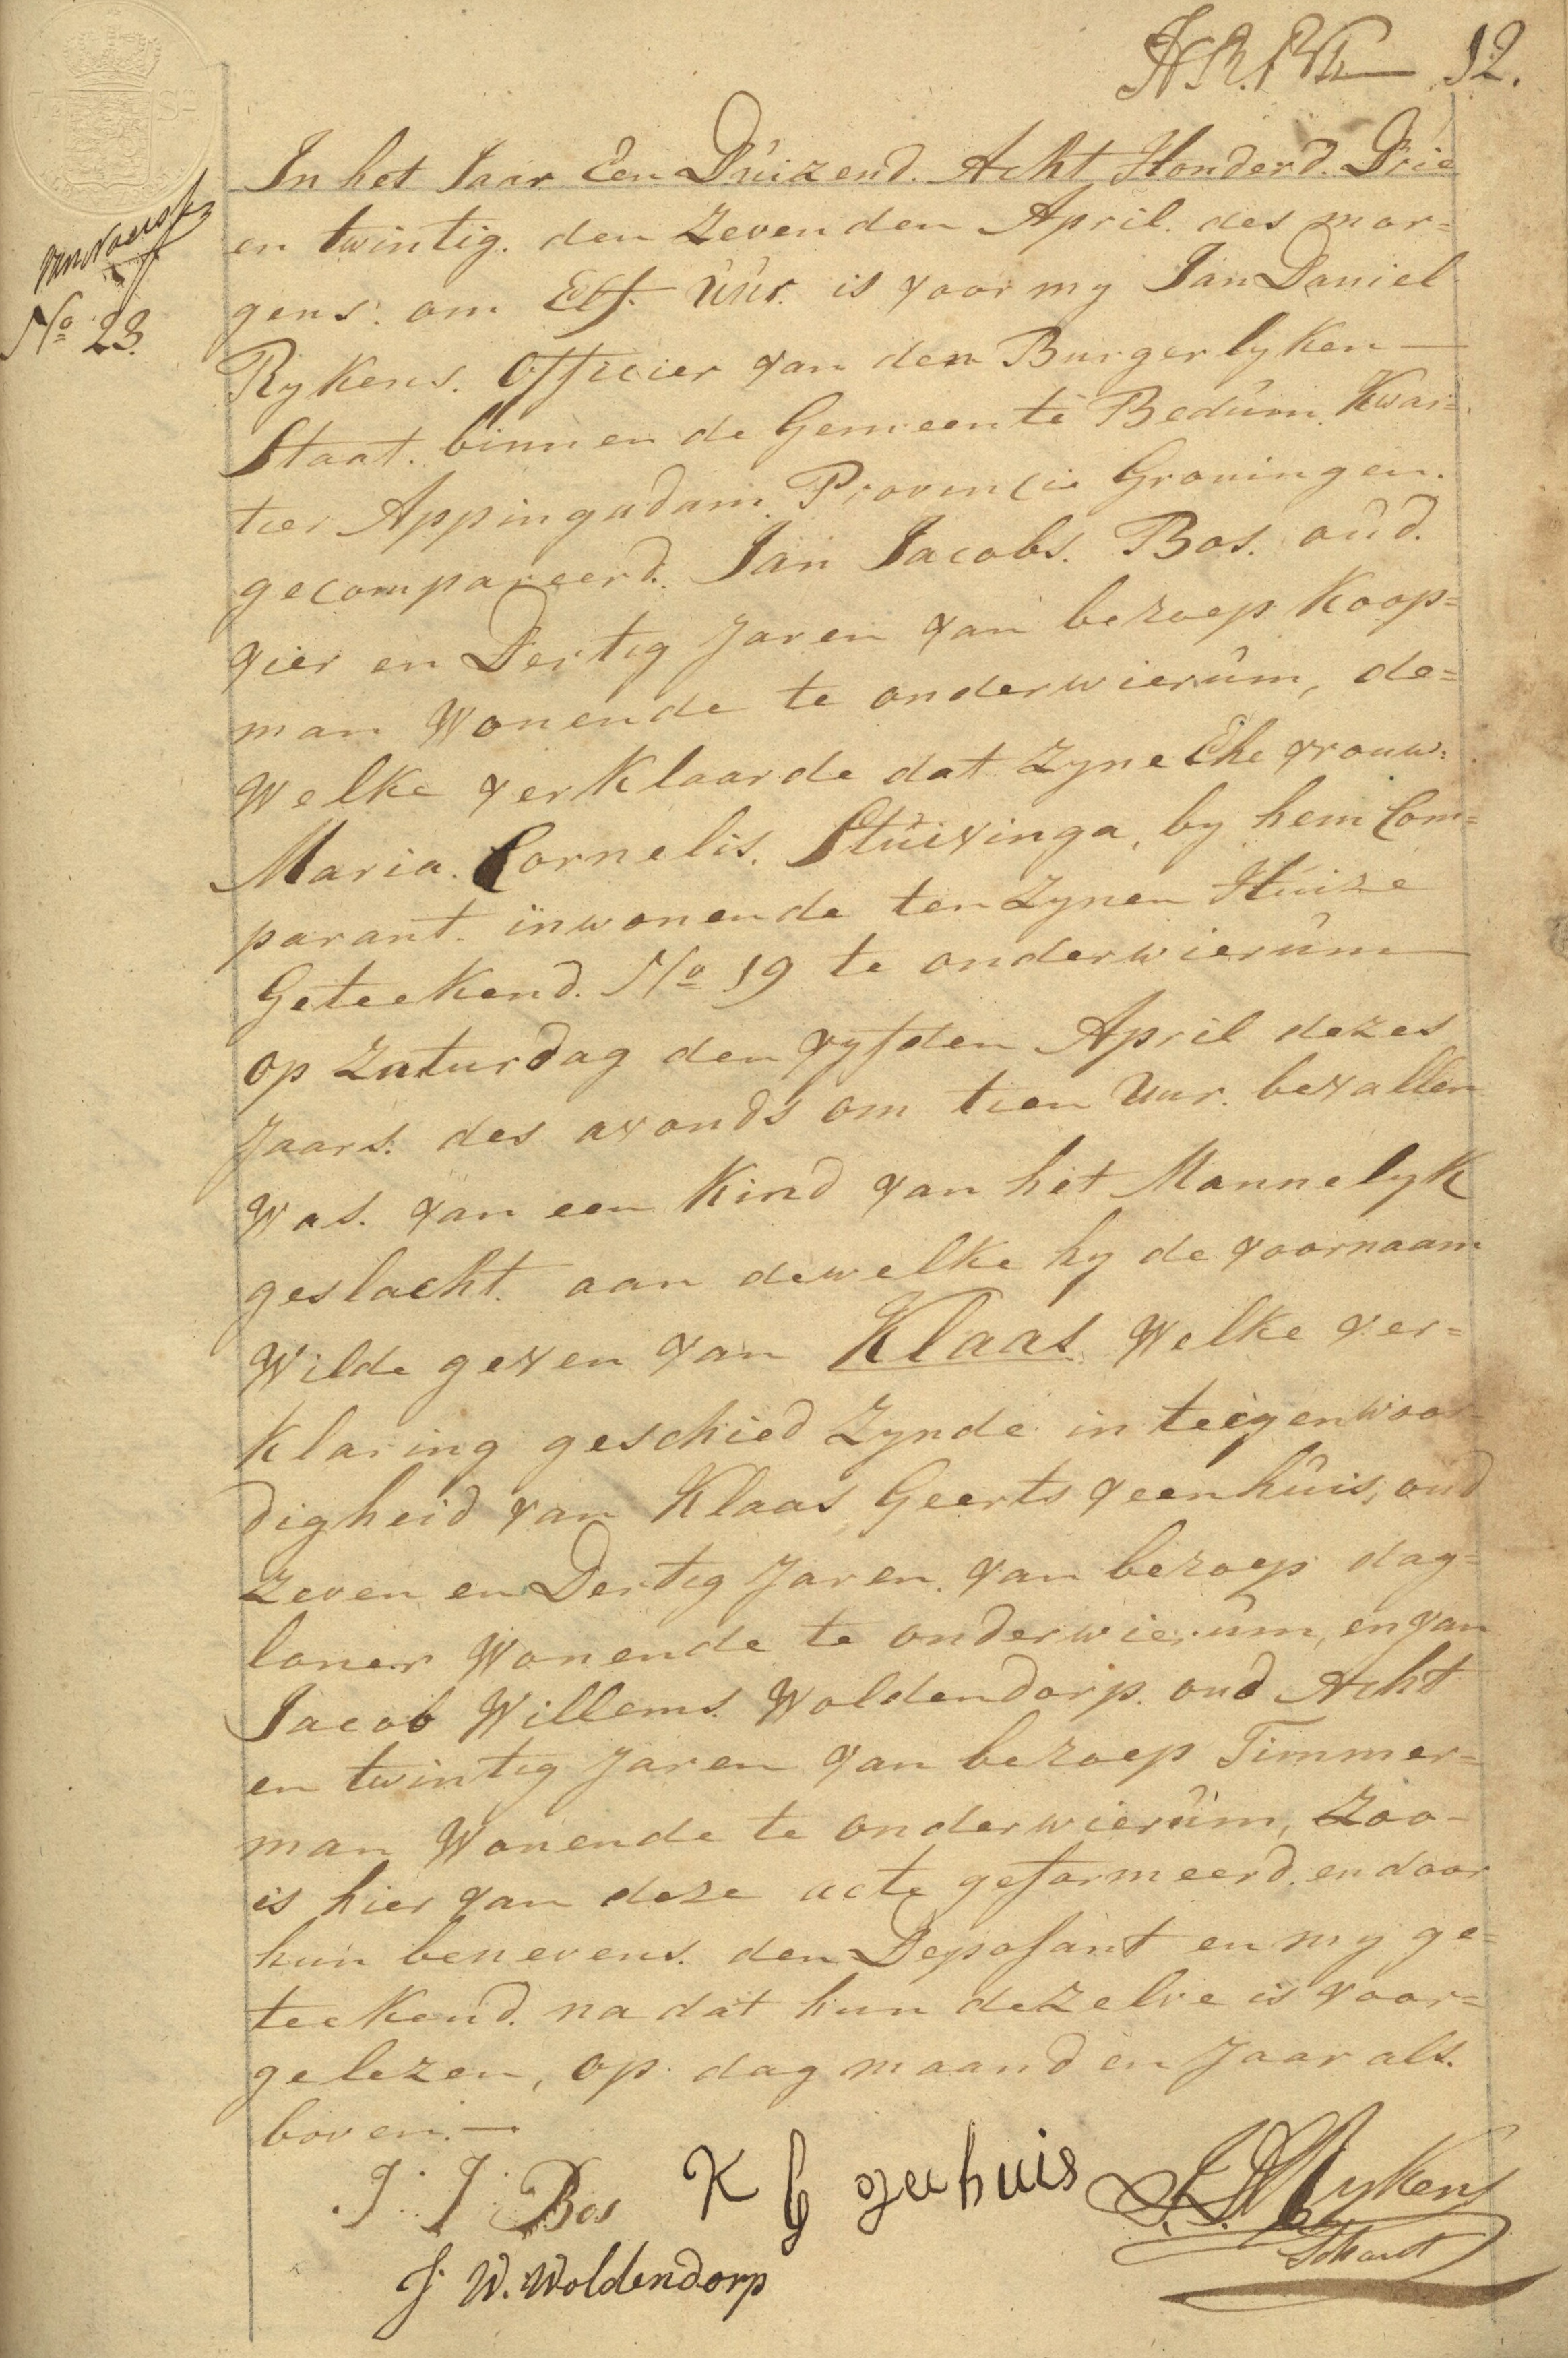 12.
In het Jaar Een Duizend. Acht Honderd. Drie
en twintig. den Zevenden April. des mor=
gens. om Elf. Uur. is voor my Jan Daniel
N.o 23.
Rykens. Officier van den Burgerlyken —
Staat. binnen de Gemeente Bedum. Kwar=
tier Appingadam. Provincie Groningen.
gecompareerd. Jan Jacobs. Bos. oud.
vier en Dertig Jaren van beroep Koop=
man Wonende te onderwierum, de=
Welke verklaarde dat Zyne Ehe vrouw=
Maria. Cornelis. Stuivinga, by hem Com=
parant. inwonende ten Zynen Huize
Geteekend. N.o 19 te onderwierum —
op Zaturdag den vyfden April dezes
Jaars. des avonds om tien Uur. bevallen
Was. van een Kind van het Mannelyk
geslacht. aan dewelke hy de voornaam
Wilde geven van Klaas Welke ver=
klaring geschied Zynde in teegenwoor=
digheid van Klaas Geerts veenhuis, oud
Zeven en Dertig Jaren. van beroep dag=
loner Wonende te onderwierum, en van
Jacob Willems. Woldendorp. oud Acht
en twintig Jaren van beroep Timmer=
man Wonende te onderwierum, Zoo-
is hier van deze acte geformeerd. en door
hun benevens. den Deposant en my ge=
teekend. na dat hun dezelve is voor=
gelezen, op dag maand en Jaar als.
boven. —
J. J. Bos K G veehuis J. D. Rykens
Schout
J. W. Woldendorp